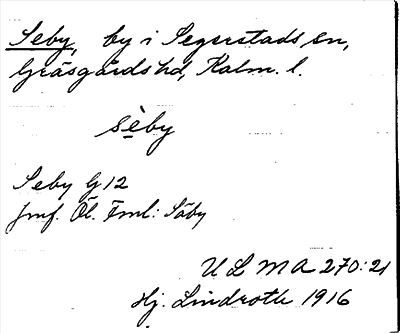 Seby, by i Segerstads sn,
Gräsgårds hd, Kalm. l.
sèby
Seby G 12
jmf. Öl. Fml: Säby
ULMA 270:21
Hj. Lindroth 1916